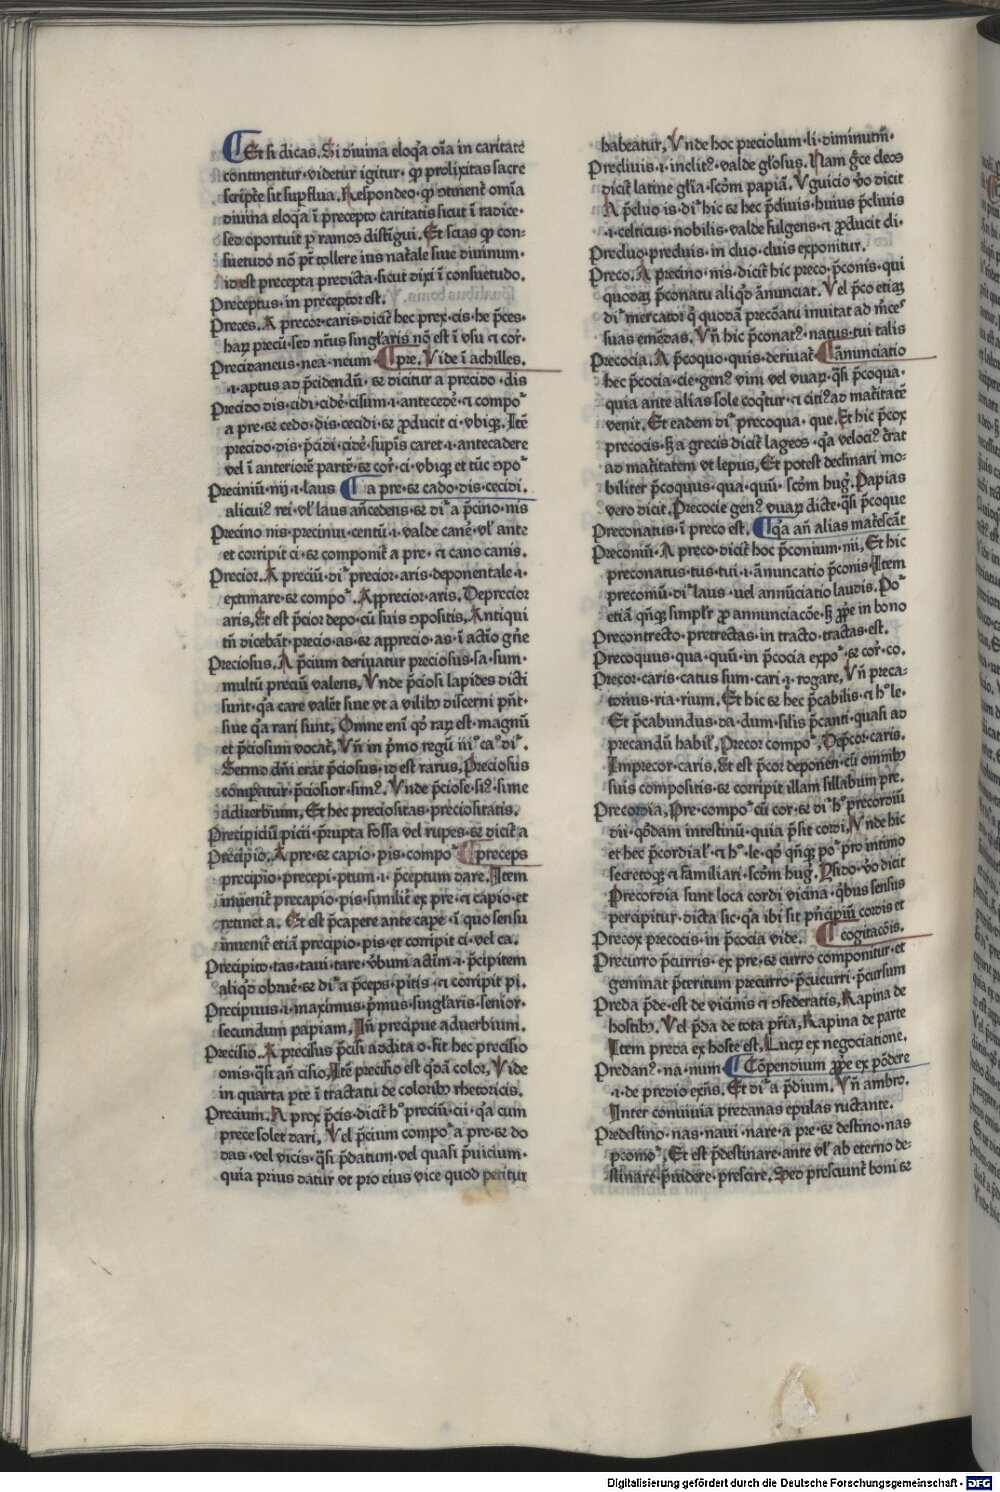 Et si dicas. Si diuina eloq̄a oīa in caritate
continentur· videtur igitur· ꝙ prolixitas sacre
scripte͛ sit suꝑflua. Respondeo· ꝙ ↄtinent͛ omīa
diuina eloq̄a ī precepto caritatis sicut ī radice·
sed oportuit ꝑ ramos distīgui. Et scias ꝙ con-
suetudo nō pt͛ tollere ius nat͛ale siue diuinum·
id est precepta predicta· sicut dixi ī consuetudo.
Preceptus· in preceptor est.
Preces. A precor· caris· dicit͛ hec prex· cis· he p̄ces·
haꝝ precū· sed nt͛us singl̓aris nō est ī vsu ⁊ cor͛.
Precidaneus· nea· neum· ¶ pre. Vide ī achilles.
·i· aptus ad p̄cidendū· ⁊ dicitur a precido· dis
Precido dis· cidi· cidē͛ cisum· i· antecedē͛ ⁊ compo͛
a pre· ⁊ cedo· dis· cecidi· ⁊ ꝓducit ci· vbiqꝫ. Itē
precido· dis· p̄cidi· cidē͛· supīs caret· i· antecadere
vel ī anteriorē partē· ⁊ cor͛· ci· vbiqꝫ et tūc ↄpo͛
Preciniū· nij· i· laus ¶ a pre· ⁊ cado· dis· cecidi.
alicui⁹ rei· vl̓ laus an̄cedens· ⁊ di͛ a p̄cino· nis
Precino nis· precinui· centū· i· valde canē͛· vl̓ ante
et corripit ci· ⁊ componit͛ a pre· ⁊ cano canis.
Precior. A preciū· di͛ precior· aris· deponentale· i·
extimare· ⁊ compo͛. Apprecior· aris. Deprecior
aris, Et est p̄cior depo· cū suis ↄpositis, Antiqui
tn̄ dicebāt· precio· as· ⁊ apprecio· as· ī actīo gn̄e
Preciosus. A p̄cium deriuatur preciosus· sa· sum·
multū preciū valens, Vnde p̄ciosi lapides dicti
sunt· q̄a care valēt siue vt a vilibꝫ discerni pn̄t·
siue q̄a rari sunt, Omne enī qd̓ raꝝ est· magnū
et p̄ciosum vocat͛, Vn̄ in p̄mo regū iii⁰ ca⁰ di͛.
Sermo dn̄i erat p̄ciosus· id est rarus, Preciosus
compatur· p̄ciosior· sim⁹. Vnde p̄ciose· si⁹· sime
aduerbium, Et hec preciositas· preciositatis.
Precipiciū· picii· p̄rupta fossa vel rupes· ⁊ dicit͛ a
Precipio. A pre· ⁊ capio· pis· compo͛ ¶ preceps
precipio· precepi· ptum· i· p̄ceptum dare. Item
inuenit͛ precapio· pis· similit͛ ex pre· ⁊ capio· et
retinet a. Et est p̄capere ante cape͛· ī quo sensu
inuenit͛ etiā precipio· pis· et corripit ci· vel ca.
Precipito· tas· taui· tare· v̓bum actīm· i· p̄cipitem
aliqd̓ obrue͛· ⁊ di͛ a p̄ceps· pitis· ⁊ corripit pi.
Precipuus· i· maximus· p̄mus· singl̓aris· senior·
secundum papiam, In̄ precipue aduerbium.
Precisio. A precisus· p̄cisi addita o· fit hec precisio
onis· q̄si an̄ cisio, Itē precisio est q̄dā color, Vide
in quarta pte ī tractatu de coloribꝫ rhetoricis.
Precium. A prex p̄cis· dicit͛ h⁰ preciū· cii· q̄a cum
prece solet dari, Vel p̄cium compo͛ a pre· ⁊ do
das· vel vicis· q̄si p̄datum· vel quasi p̄uicium·
quia prius datur vt pro eius vice quod petitur
habeatur, Vnde hoc preciolum· li· diminutm̄·
Precliuis· i· inclit⁹· valde gl̓osus. Nam gr̄ce cleos
dicit͛ latine gl̓ia· scd̓m papiā. Vguicio v̓o dicit
A p̄cluo is· di͛ hic ⁊ hec p̄cliuis· huius p̄cliuis
·i· celticus· nobilis· valde fulgens· ⁊ ꝓducit di·
Precluo· precluis· in cluo· cluis exponitur.
Preco. A precino· nis· dicit͛ hic preco· p̄conis· qui
quodaꝫ p̄conatu aliqd̓ ānunciat. Vel p̄co etiaꝫ
di͛ mercator q̓ quodā precōatu inuitat ad m̓ces
suas emēdas. Vn̄ hic p̄conat⁹· natus· tui talis
Precocia. A p̄coquo· quis· deriuat͛ ¶ ānunciatio
hec p̄cocia· cie· gen⁹ vini vel vuaꝝ· q̄si p̄coqua·
quia ante alias sole coq̄tur· ⁊ citi⁹ ad mat͛itatē
venit. Et eadem di͛ precoqua· que. Et hic p̄cox
precocis· ꝫ a grecis dicit͛ lageos· q̄a veloci⁹ c͛rat
ad mat͛itatem vt lepus, Et potest declinari mo-
biliter p̄coquus· qua· quū· scd̓m hug̓. Papias
vero dicit. Precocie gen⁹ vuaꝝ dicte· q̄si p̄coque
Preconatus· ī preco est. ¶ q̄a an̄ alias mat͛escāt
Preconiū. A preco· dicit͛ hoc p̄conium· nii, Et hic
preconatus· tus· tui· i· ānuncatio p̄conis· Item
preconiū· di͛ laus· uel annūciatio laudis. Po͛
etiā qn̄qꝫ simplr̓ ꝓ annunciacōe· ꝫ ꝓpe in bono
Precontrecto· pretrectas· in tracto· tractas· est.
Precoquus· qua· quū· in p̄cocia expo͛· ⁊ cor͛· co.
Precor· caris· catus sum· cari· i· rogare, Vn̄ preca-
torius· ria· rium. Et hic ⁊ hec p̄cabilis· ⁊ h⁰· le·
Et p̄cabundus· da· dum· silis p̄canti· quasi ad
precandū habil̓, Precor compo͛, Dep̄cor· caris.
Imprecor· caris. Et est p̄cor deponen̄· cū omnibꝫ
suis compositis· ⁊ corripit illam sillabam pre.
Precordia, Pre· compo͛ cū cor· ⁊ di͛ h⁰ precordiū
dii· qd̓dam intestinū· quia p̄sit cordi, Vnde hic
et hec p̄cordial̓· ⁊ h⁰· le· qd̓ qn̄qꝫ po͛ pro intimo
secretoqꝫ ⁊ familiari· scd̓m hug̓. Ysido· v̓o dicit
Precordia sunt loca cordi vicina· q̓bus sensus
percipitur· dicta sic· q̄a ibi sit pn̄cipiū cordis et
Precox precocis· in p̄cocia vide. ¶ cogitacōis.
Precurro p̄curris· ex pre· ⁊ curro componitur· et
geminat p̄teritum precurro· p̄cucurri· p̄cursum
Preda p̄de· est de vicinis ⁊ ↄfederatis, Rapina de
hostibꝫ. Vel p̄da de tota pr̄ia, Rapina de parte
Item preda ex hoste est, Lucꝝ ex negociatione.
Predan⁹· na· num ¶ Cōpendium ꝓpe ex pōdere
·i· de predio exn̄s. Et di͛ a p̄dium. Vn̄ ambro.
Inter conuiuia predanas epulas ructante.
Predestino· nas· naui· nare· a pre· ⁊ destino· nas
ↄpomo͛, Et est p̄destinare· ante vl̓ ab eterno de-
stinare· p̄uidere· prescire. Sed presciunt͛ boni ⁊
Digitalisierung gefördert durch die Deutsche Forschungsgemeinschaft - DFG